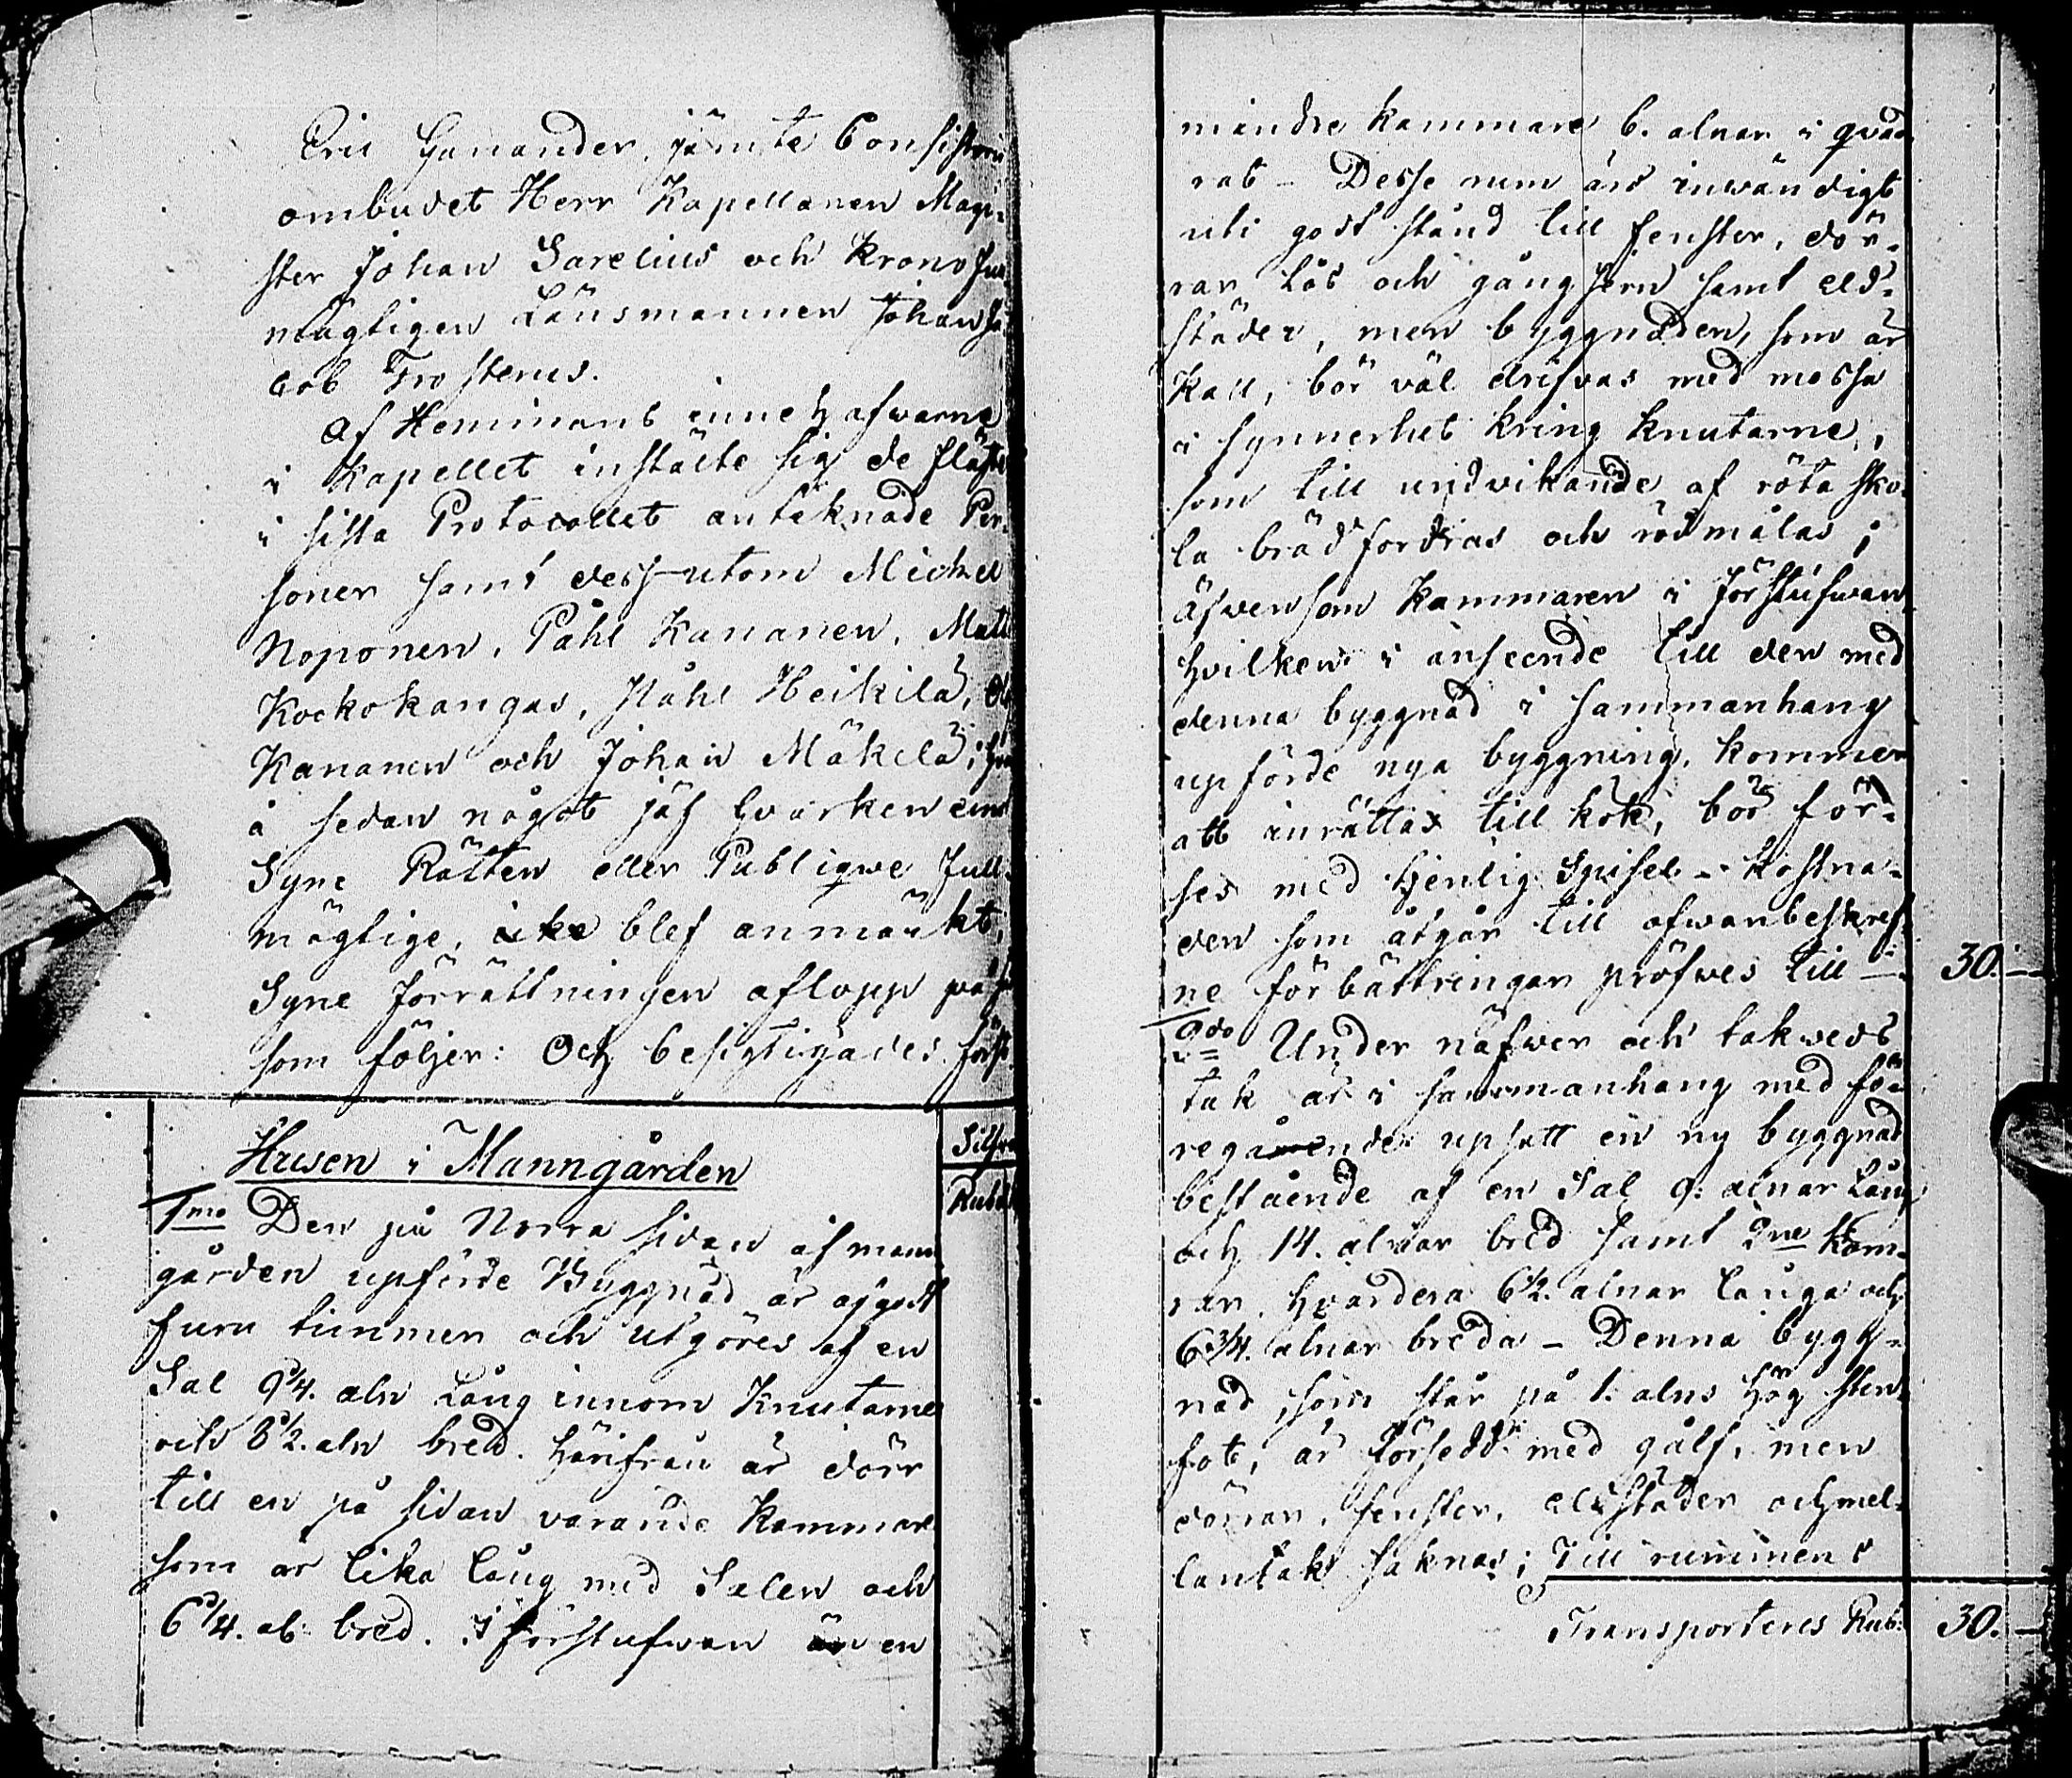 Eric Ganander, jämte Consistorii
ombudet Herr Kapellanen Magi-
ster Johan Sarelius och Krono full
mägtigen Länsmannen Johan Ja-
cob Frosterus.
Af Hemmans innehafwarne
i Kapellet instälte sig de fläste
i sista Protocollet anteknade Per-
soner samt dess utom Michel
Noponen, Påhl Kananen, Matts
Kockokangas, Påhl Heikilä,
Kananen och Johan Mäkelä;
å sedan något jäf hvarken emot
Syne Rätten eller Publiqve Full-
mägtige, icke blef anmärkt;
Syne Förrättningen aflopp på sätt
som följer: Och besigtigades först.
Husen i Manngården
Silfver
Rubel
1mo Den på Norra sidan af mann
gården upförde Byggnad är af godt
furu timmer och utgöres af en
Sal 9 1/4. aln Lång innom Knutarne
och 8 1/2. aln bred. Härifrån är dörr
till en på sidan varande Kammare
som är lika lång med Salen och
6 1/4. al: bred. I förstufwan är en
mindre kammare 6. alnar i qvad-
rat - Desse rum äro inwändigt
uti godt stånd till fenster, dör-
rar Lås och gångjern samt eld-
städer, men byggnaden, som är
Kall, bör väl drifvas med mossa
i synnerhet kring knutarne,
som till undvikande af röta sko-
la brädfordras och rödmålas;
äfvensom Kammaren i Förstufwan
hvilken i anseende till den med
denna byggnad i sammanhang
upförde nya byggning, kommer
att inrättas till kök, bör för-
ses med tjenlig Spisel - kostna-
den som åtgår till ofwanbeskref-
ne förbättringar pröfwes till — 30. —
2do Under näfwer och takveds
tak är i sammanhang med fö-
regående upsatt en ny byggnad
bestående af en Sal 9. alnar Lång
och 14. alnar bred samt 2ne kam-
rar, hvardera 6 1/2. alnar långa och
6 3/4. alnar breda - Denna bygg-
nad, som står på 1. alns hög sten
fot, är försedd med gålf, men
dörrar, fenster, eldstäder och mel-
lantak saknas; Till rummens
Transporteres Rub. 30. —